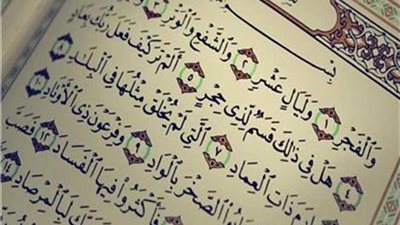 بِسْمِ
وَٱلْفَجْرِ ١ وَلَيَالٍ عَشْرٍ ٢ وَٱلشَّفْعِ وَٱلْوَتْرِ ٣
٤ هَلْ فِى ذَٰلِكَ قَسَمٌ لِّذِى حِجْرٍ ٥ أَلَمْ تَرَ كَيْفَ فَعَلَ رَبُّكَ بِعَادٍ
إِرَمَ ذَاتِ ٱلْعِمَادِ ٧ ٱلَّتِى لَمْ يُخْلَقْ مِثْلُهَا فِى ٱلْبِلَٰدِ ٨
جَابُوا۟ ٱلصَّخْرَ بِٱلْوَادِ ٩ وَفِرْعَوْنَ ذِى ٱلْأَوْتَادِ ١٠
فَأَكْثَرُوا۟ فِيهَا ٱلْفَسَادَ ١٢ فَصَبَّ
رَبَّكَ لَبِٱلْمِرْصَادِ ١٤